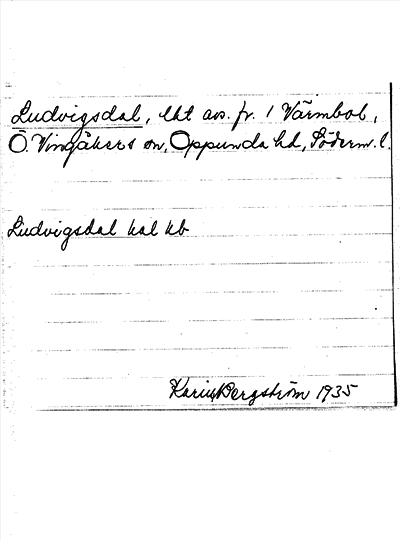 Ludvigsdal, lht avs. fr. 1 Värmbol,
Ö. Vingåkers sn, Oppunda hd, Söderm. l.
Ludvigsdal kal kb
Karin Bergström 1935